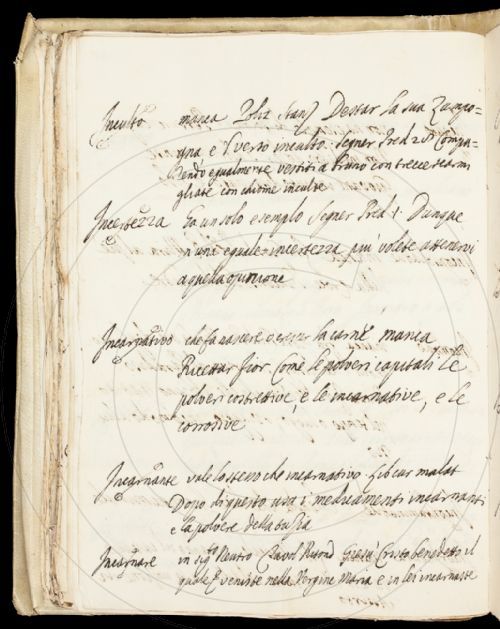 Inculto manca Poliz Stanz Destar la sua Zampo=
gna e 'l verso inculto. Segner Pred 28 Compa=
rendo egualmente vestiti a bruno con treccie scarmi
gliate con chiome inculte
Incertezza ha un solo esempio Segner Pred 1. Dunque
in una eguale incertezza piu volete attenervi
a quella opinione
Incarnativo che fa nascere o crescer la carne manca
Ricettar Fior. Come le polveri capitali le
polveri costrettive, e le incarnative, e le
corrosive
Incarnante vale lo stesso che incarnativo. Lib cur malat
Dopo di questo usa i medicamenti incarnanti
e la polvere della
Incarnare in sig.to Neutro Cavol Giesù Cristo benedetto il
quale venisse nella Vergine Maria e in lei incarnasse